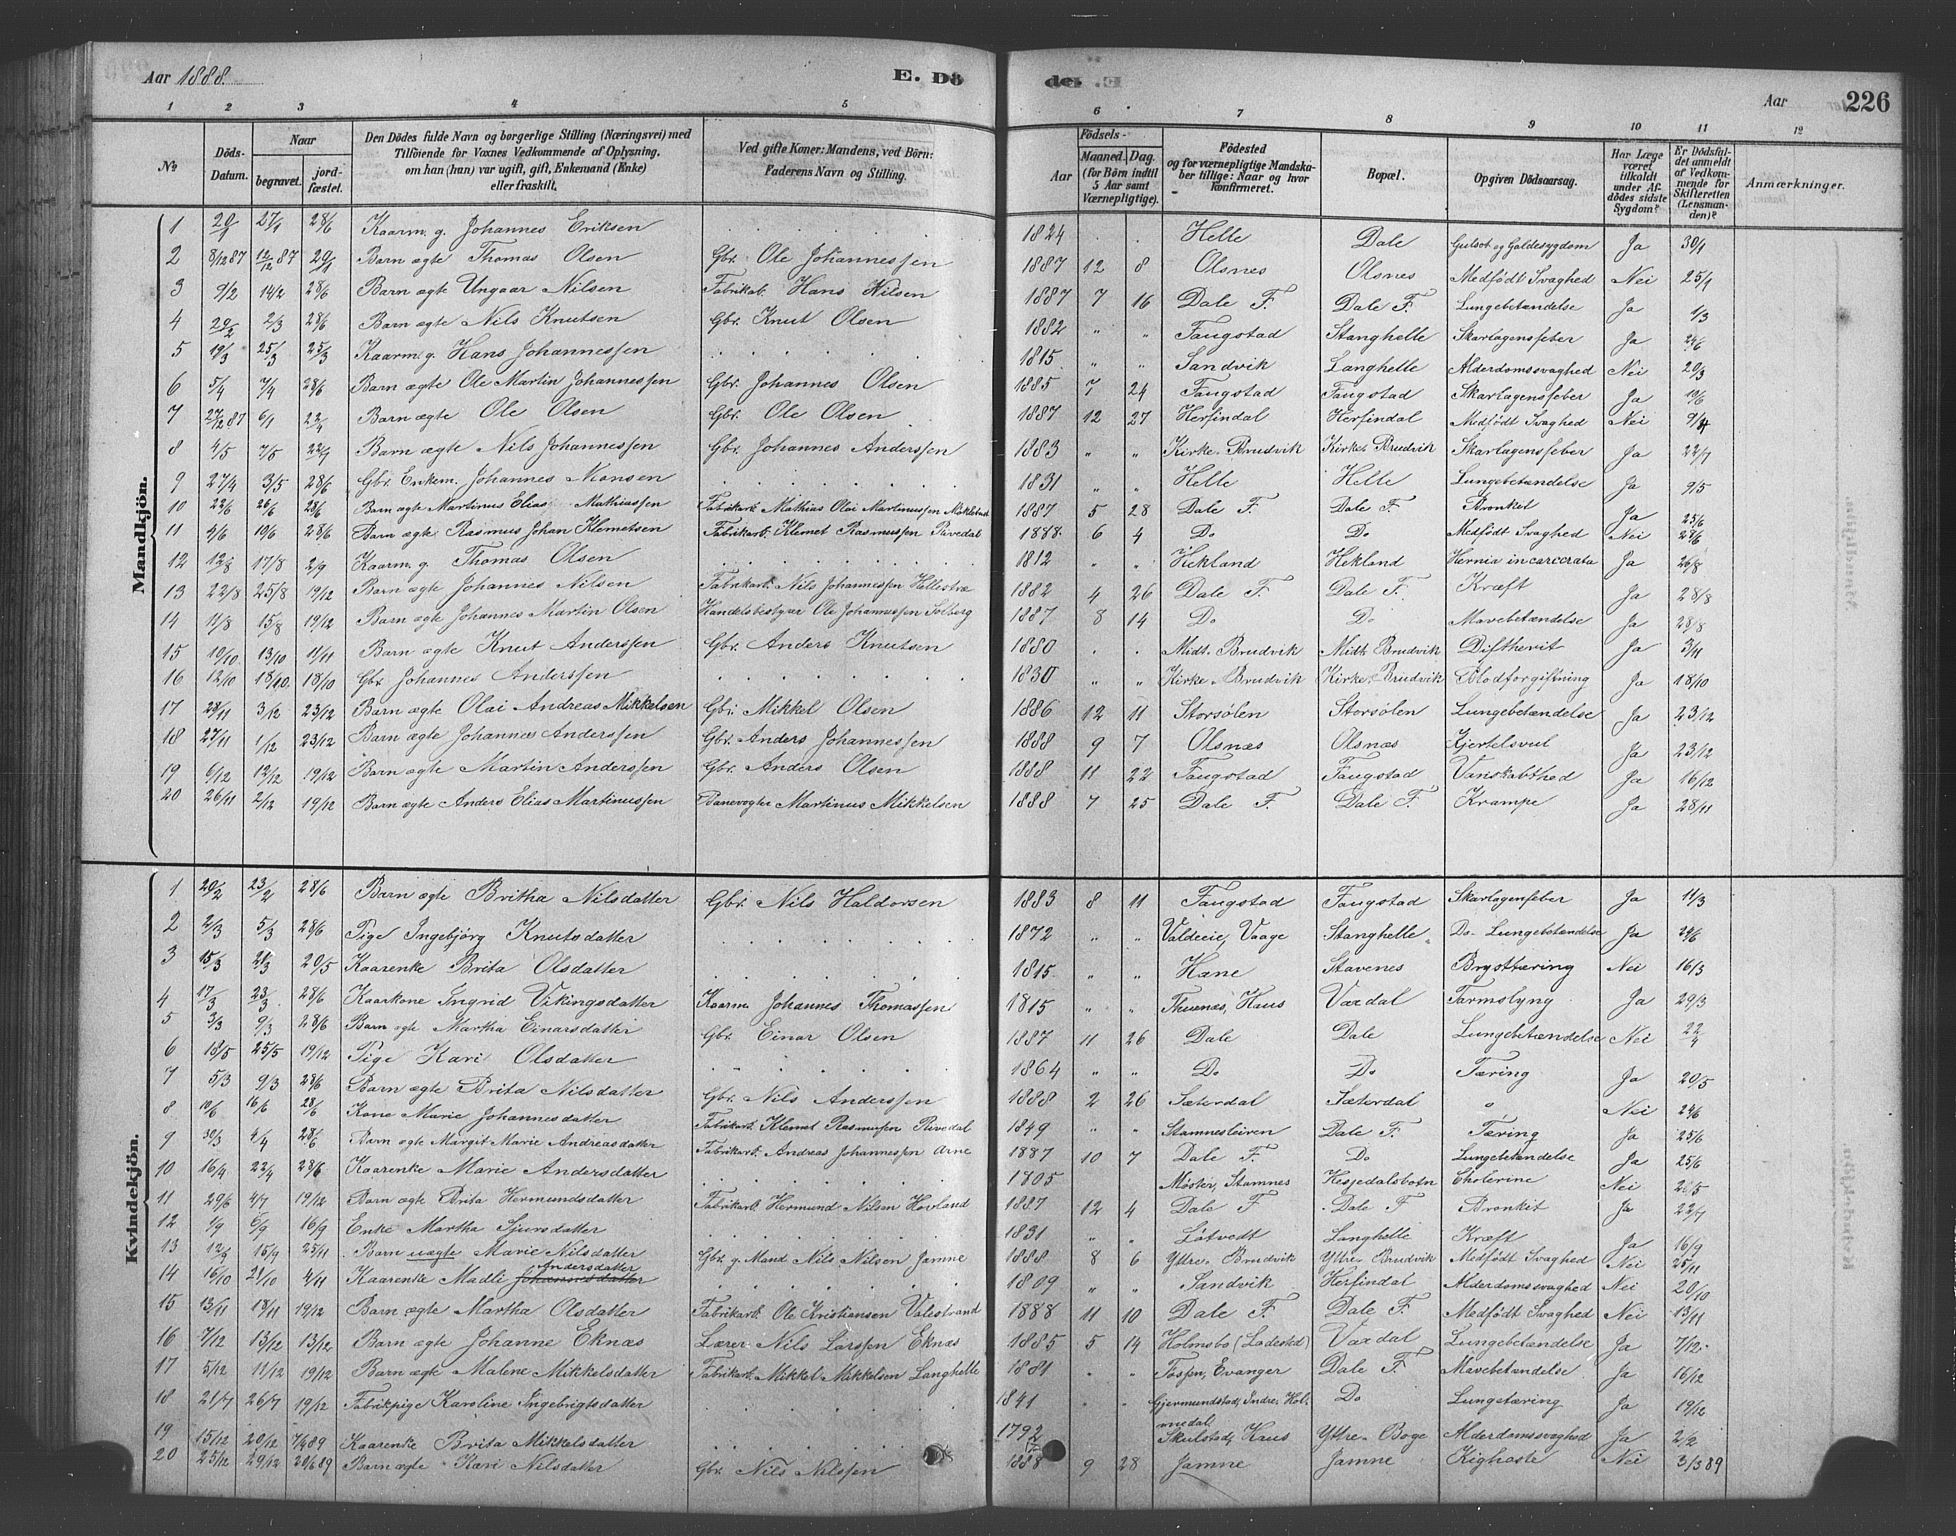 Aar 1888. E. Dö
de. E Aar 226
1 2 3 4 5
6 7 8 9 10 11 12
No Döds-Datum. Naar begravet. jordfæstet. Den Dödes fulde Navn og borgerlige Stilling (Næringsvei) med Tilföiende for Voxnes Vedkommende af Oplysning, om han (hun) var ugift, gift, Enkemand (Enke) eller fraskilt. Ved gifte Koner: Mandens, ved Börn: Faderens Navn og Stilling.
Födsels- Aar Maaned. Dag. (for Börn indtil 5 Aar samt Værnepligtige). Födested og for værnepligtige Mandskaber tillige: Naar og hvor konfirmeret. Bopæl. Opgiven Dödsaarsag. Har Læge været tilkaldt under Afdödes sidste Sygdom? Er Dödsfaldet anmeldt af Vedkommende for Skifteretten (Lensmanden)? Anmærkninger.
Mandkjön.
1 20/1 27/1 28/6 Kaarm. g. Johannes Eriksen 1824 Helle Dale Gulsot og Galdesygdom Ja 30/1
2 8/12 87 12/12 87 29/1 Barn ægte Thomas Olsen Gbr. Ole Johannessen 1887 12 8 Olsnes Olsnes Medfödt Svaghed Nei 25/1
3 9/2 14/2 28/6 Barn ægte Ungaar Nilsen Fabrikab. Hans Nilsen 1887 7 16 Dale F. Dale F. Lungebetændelse Ja 1/3
4 20/2 2/3 28/6 Barn ægte Nils Knutsen Gbr. Knut Olsen 1882 " " Faugstad Stanghelle Skarlagensfeber Ja 29/6
5 19/3 25/3 25/3 Kaarm. g. Hans Johannessen 1815 " " Sandvik Langhelle Alderdomssvaghed Nei 20/3
6 5/4 7/4 28/6 Barn ægte Ole Martin Johannessen Gbr. Johannes Olsen 1885 7 24 Faugstad Faugstad Skarlagensfeber Ja 19/6
7 27/12 87 6/1 22/4 Barn ægte Ole Olsen Gbr. Ole Olsen 1887 12 27 Herfindal Herfindal Medfödt Svaghed Nei 9/4
8 4/5 7/5 22/7 Barn ægte Nils Johannessen Gbr. Johannes Anderssen 1883 " " Kirke-Brudvik Kirke-Brudvik Skarlagensfeber Ja 22/7
9 27/4 3/5 28/6 Gbr. Enkem. Johannes Monsen 1831 " " Helle Helle Lungebetændelse Ja 9/5
10 22/6 26/6 28/6 Barn ægte Martinus Elias Mathiassen Fabrikarb. Mathias Olai Martinussen Mikletud 1887 5 28 Dale F. Dale F. Bronket Ja 25/6
11 4/6 10/6 28/6 Barn ægte Rasmus Johan Klemetsen Fabrikarb. Klemet Rasmussen Rivedal 1888 6 4 Do Do Medfödt Svaghed Nei 28/6
12 12/8 17/8 2/9 Kaarm. g. Thomas Olsen 1812 Hekland Hekland Hernia incarcerata Ja 26/8
13 22/8 25/8 19/12 Barn ægte Johannes Nilsen Fabrikarb. Nils Johannessen Hellestræ 1882 4 26 Dale F. Dale F. Kræft Ja 28/8
14 11/8 15/8 19/12 Barn ægte Johannes Martin Olsen Handelsbestyrer Ole Johannessen Solberg 1887 8 14 Do Do Mavebetændelse Ja 28/8
15 10/10 13/10 11/11 Barn ægte Knut Anderssen Gbr. Anders Knutsen 1880 " " Midt. Brudvik Midt. Brudvik Diftherit Ja 3/11
16 12/10 18/10 18/10 Gbr. Johannes Anderssen 1830 " " Kirke-Brudvik Kirke-Brudvik Blodforgiftning Ja 18/10
17 28/11 3/12 23/12 Barn ægte Olai Andreas Mikkelsen Gbr. Mikkel Olsen 1886 12 11 Storsölen Storsölen Lungebetændelse Ja 23/12
18 27/11 1/12 23/12 Barn ægte Johannes Anderssen Gbr. Anders Johannessen 1888 9 7 Olsnæs Olsnæs Kjertelsvul Ja 23/12
19 6/12 12/12 19/12 Barn ægte Martin Anderssen Gbr. Anders Olsen 1888 11 22 Faugstad Faugstad Vanskabthed Ja 16/12
20 26/11 2/12 19/12 Barn ægte Anders Elias Martinussen Banevogter Martinus Mikkelsen 1888 7 25 Dale F. Dale F. Krampe Ja 28/11
Kvindekjön.
1 20/2 23/2 28/6 Barn ægte Britha Nilsdatter Gbr. Nils Haldorsen 1883 8 11 Faugstad Faugstad Skarlagensfeber Ja 11/3
2 2/3 5/3 28/6 Pige Ingebjörg Knutsdatter 1872 " " Valdeeie, Vaage Stanghelle Do- Lungebetændelse Ja 29/6
3 15/3 21/3 20/5 Kaarenke Brita Olsdatter 1815 " " Hane Stavenes Brysttæring Nei 16/3
4 17/3 23/3 28/6 Kaarkone Ingrid Vikingsdatter Kaarm. Johannes Thomassen 1815 " " Thuenæs, Haus Vaxdal Tarmslyng Ja 29/3
5 3/3 9/3 28/6 Barn ægte Martha Einarsdatter Gbr. Einar Olsen 1887 11 26 Dale Dale Lungebetændelse Nei 22/4
6 18/5 25/5 19/12 Pige Kari Olsdatter 1864 " " Do Do Tæring Ja 20/5
7 5/3 9/3 28/6 Barn ægte Brita Nilsdatter Gbr. Nils Anderssen 1888 2 26 Sæterdal Sæterdal " Nei 24/6
8 10/6 16/6 28/6 Kone Marie Johannesdatter Fabrikarb. Klemet Rasmussen Rivedal 1849 " " Stamnesleiren Dale F. Tæring Ja 25/6
9 30/3 4/4 28/6 Barn ægte Margit Marie Andreasdatter Fabrikarb. Andreas Johannessen Arne 1887 10 7 Dale F. Do Lungebetændelse Ja 25/6
10 16/4 22/4 28/6 Kaarenke Marie Andersdatter 1805 Möster, Stamnes Hesjedalsbotn Cholerine Nei 20/5
11 29/6 4/7 19/12 Barn ægte Brita Hermundsdatter Fabrikarb. Hermund Nilsen Hovland 1887 12 4 Dale F Dale F Bronkit Ja 22/7
12 2/9 6/9 16/9 Enke Martha Sjursdatter 1831 " Lötvedt Langhelle Kræft Ja 16/9
13 12/9 15/9 25/11 Barn uægte Marie Nilsdatter Gbr. g. Mand Nils Nilsen Jamne 1888 8 6 Yttre-Brudvik Yttre-Brudvik Medfödt Svaghed Nei 25/11
14 16/10 21/10 4/11 Kaarenke Madli Andersdatter Johannesdatter 1809 " Sandvik Herfindal Alderdomssvaghed Nei 20/10
15 13/11 18/11 19/12 Barn ægte Martha Olsdatter Fabrikarb. Ole Kristiansen Valestrand 1888 11 10 Dale F Dale F. Medfödt Svaghed Nei 13/11
16 7/12 13/12 13/12 Barn ægte Johanne Eknæs Lærer Nils Larssen Eknæs 1885 5 14 Holmsbo (Ladested) Vaxdal Lungebetændelse Ja 7/12
17 5/12 11/12 19/12 Barn ægte Malene Mikkelsdatter Fabrikarb. Mikkel Mikkelsen Langhelle 1881 " " Tossen, Evanger Dale F. Mavebetændelse Ja 16/12
18 21/7 26/7 19/12 Fabrikpige Karoline Ingebrigtsdatter 1841 " " Gjermundstad, Indre Holmedal Do Lungetæring Ja 19/12
19 15/12 20/12 7/4 89 Kaarenke Brita Mikkelsdatter 1792 Skulstad, Haus Yttre-Boge Alderdomssvaghed Ja 2/2
20 25/12 29/12 20/6 89 Barn ægte Kari Nilsdatter Gbr. Nils Nilssen 1888 9 28 Jamne Jamne Kighoste Nei 3/3 89